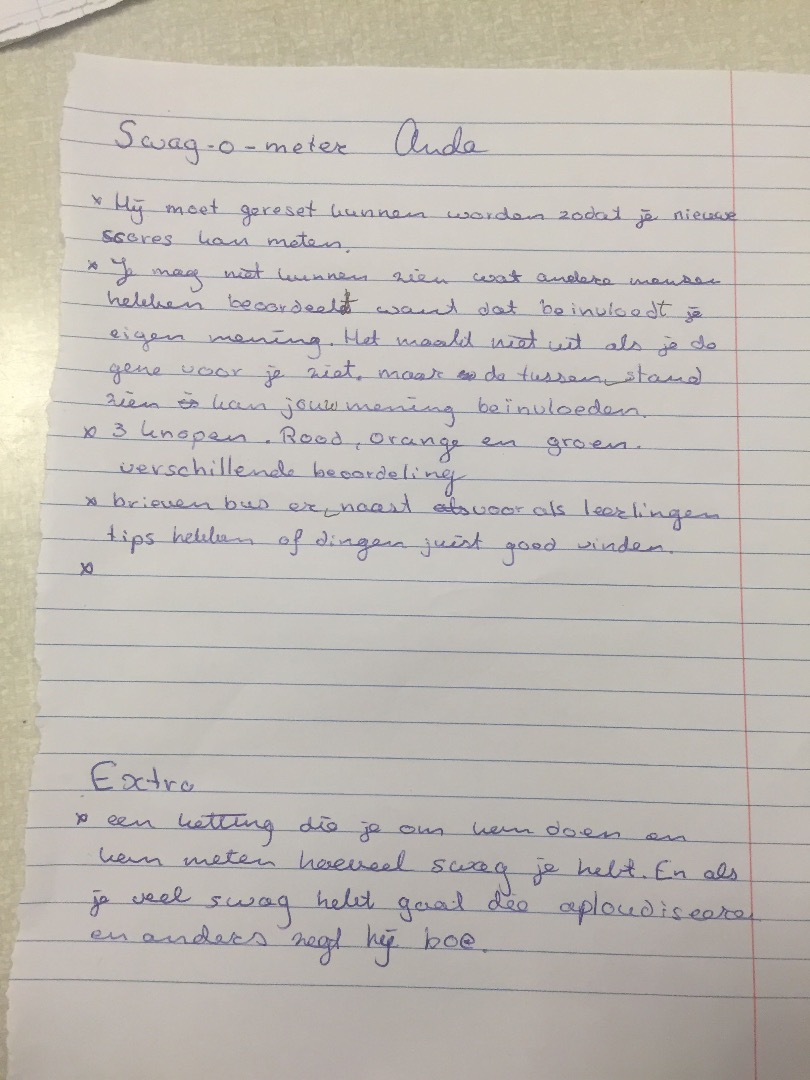 Swag-o-meter Anda
* Hij moet gereset kunnen worden zodat je nieuwe
scores kan meten.
* Je mag niet kunnen zien wat andere mensen
hebben beoordeelt want dat beinvloedt je
eigen mening. Het maakt niet uit als je de
gene voor je ziet, maar de tussen stand
zien kan jouw mening beïnvloeden.
* 3 knopen. Rood, orange en groen.
verschillende beoordeling
* brieven bus er naast voor als leerlingen
tips hebben of dingen juist goed vinden.
*
Extra
* een ketting die je om kan doen en
kan meten hoeveel swag je hebt. En als
je veel swag hebt gaat die aploudiseere
en anders zegt hij boe.